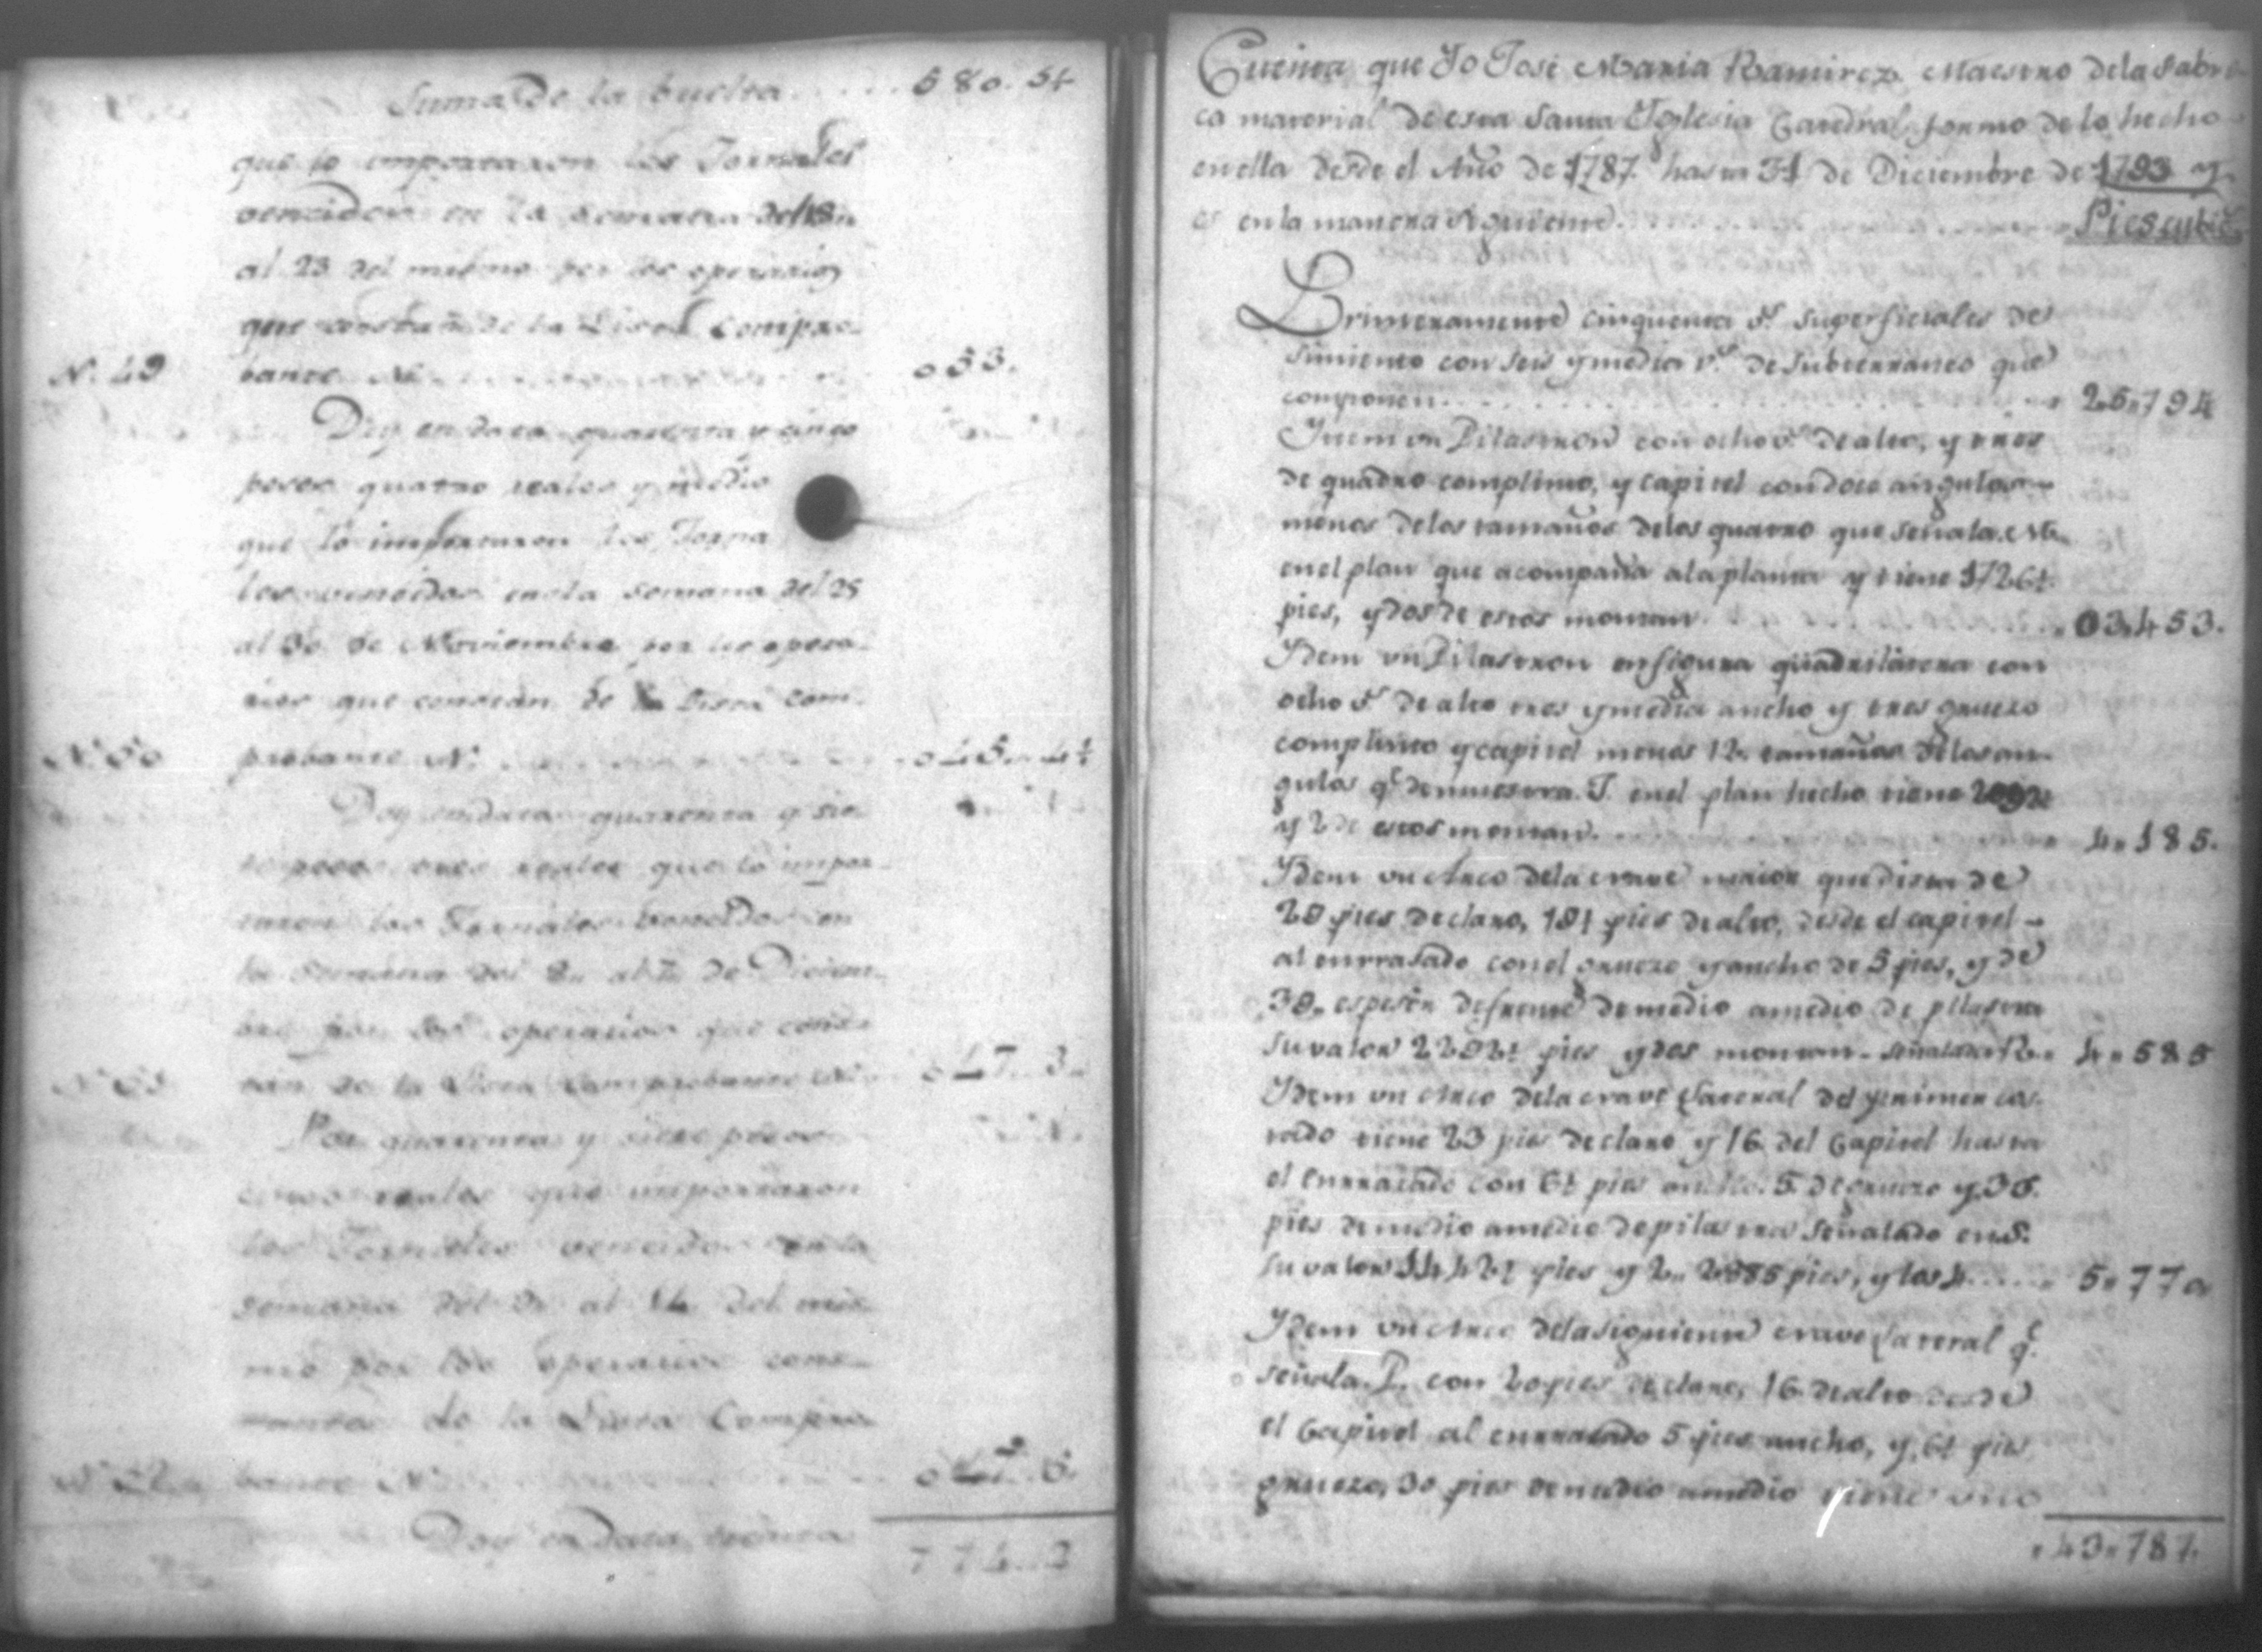 Suma de la buelta . . . . . 580. 5½
que lo importaron los Jornales
vencidos en la semana del 18,,
al 23 del mismo por los operarios
que constan de la Lista Compro-
N. 49 bante N. . . . . 053.
Doy en data quarenta y cinco
pesos quatro reales y medio
que lo importaron los Jorna
les vencidos en la semana del 25
al 30 de Noviembre por los opera-
rios que constan de la Lista com-
probante N. . . . . 045,, 4½
Doy en data quarenta y sie-
te pesos tres reales que lo impor-
taron los Jornales vencidos en
la semana del 2,, al 7,, de Diciem-
bre por los operarios que cons-
tan de la Lista comprobante . . 047.. 3..
Por quarenta y siete pesos
reales que importaron
los Jornales vencidos en la
semana del 9,, al 14 del mis-
mo por los operarios cons-
de la Lista Compro
bante N.
Doy en data
774.. 2
Cuenta que Yo José Maria Ramirez Maestro de la Fabri-
ca material de esta Santa Yglesia Catedral formo de lo hecho
en ella desde el Año de 1787 hasta 31 de Diciembre de 1793 y
es en la manera siguiente. . . . . Pies cubic.
Primeramente cinquenta v.s superficiales de
simiento con seis y media v.s de subterraneo que
componen. . . . . 25,,794
Ytem un Pilastron con ocho v.s de alto, y tres
de quadro complinto, y capitel con doce angulos
menos de los tamaños de los quatro que señala. N.
en el plan que acompaña a la planta y tiene 1726½
pies, y dos de estos montan . . . . 03,,453.
Ydem un Pilastron en figura quadrilatera con
ocho v.s de alto tres y media ancho y tres grueso
complinto y capitel menos 12. tamaños de los an-
gulos q.e demuestra. J. en el plan hecho tiene 2092½
y 2 de estos montan. . . . . 4,,185.
Ydem un Arco de la nave maior que dista de
28 pies de claro, 18½ pies de alto, desde el capitel
al enrrasado con el grueso y ancho de 5 pies, y de
38,, de frente de medio a medio de pilastra
su valor 2292½ pies y dos montan . . 4,,585
Ydem un Arco de la nave Lateral del primer cos-
tado tiene 23 pies de claro y 16 del Capitel hasta
el enrrazado con 6½ pies ancho. 5. de grueso y 36.
pies de medio a medio de pilastra señalado en S.
su valor 1442½ pies y 2,, 2885 pies, y los 4 . . . . 5,,770
Ydem un Arco de la siguiente nave Lateral q.e
señala. P. con 20 pies de claro, 16 de alto desde
el Capitel al enrrazado 5 pies ancho, y 6½ pies
grueso, 30 pies de medio a medio tiene uno
43,,787.